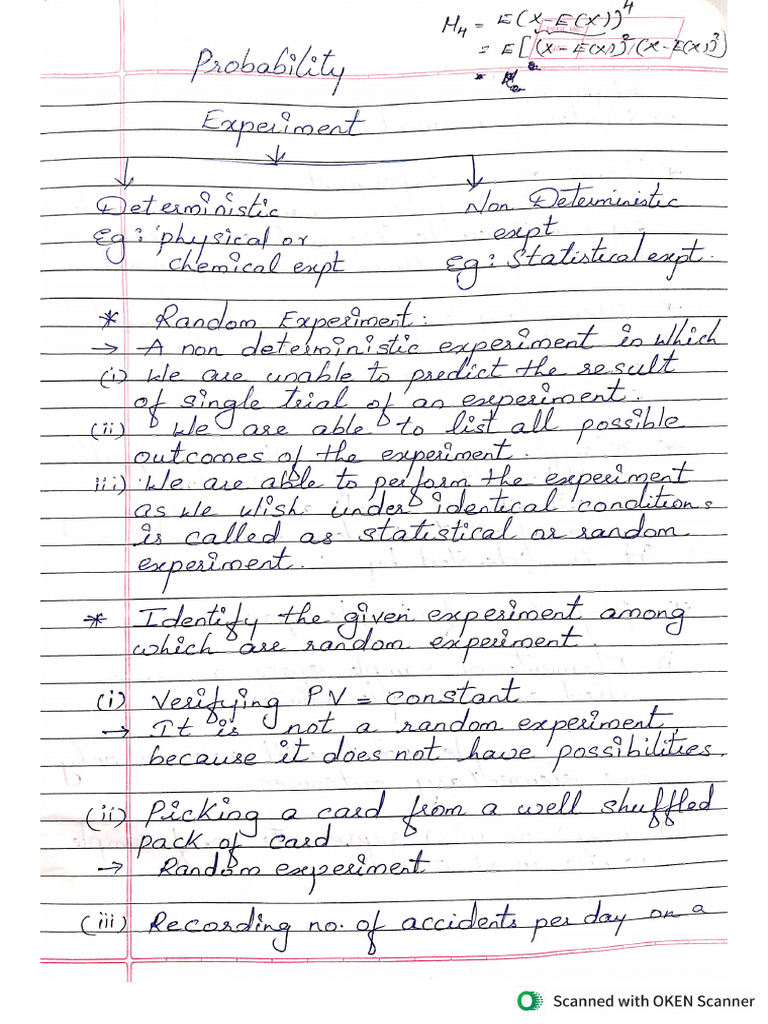 M₄ = E(X-E(X))⁴
= E[(X-E(X))²(X-E(X))²]
=
Probability
Experiment
Deterministic
Eg: physical or
chemical expt
Non Deterministic
expt
Eg: Statistical expt.
* Random Experiment:
→ A non deterministic experiment in which
(i) We are unable to predict the result
of single trial of an experiment.
(ii) We are able to list all possible
outcomes of the experiment.
iii) We are able to perform the experiment
as we wish under identical conditions
is called as statistical or random
experiment.
* Identify the given experiment among
which are random experiment.
(i) Verifying PV = constant
→ It is not a random experiment,
because it does not have possibilities.
(ii) Picking a card from a well shuffled
pack of card
→ Random experiment
(iii) Recording no. of accidents per day on a
Scanned with OKEN Scanner